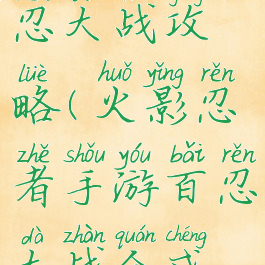 忍大战攻
lüè huǒ yǐng rěn
略(火影忍
zhě shǒu yóu bǎi rěn
者手游百忍
dà zhàn quán chéng
大战全